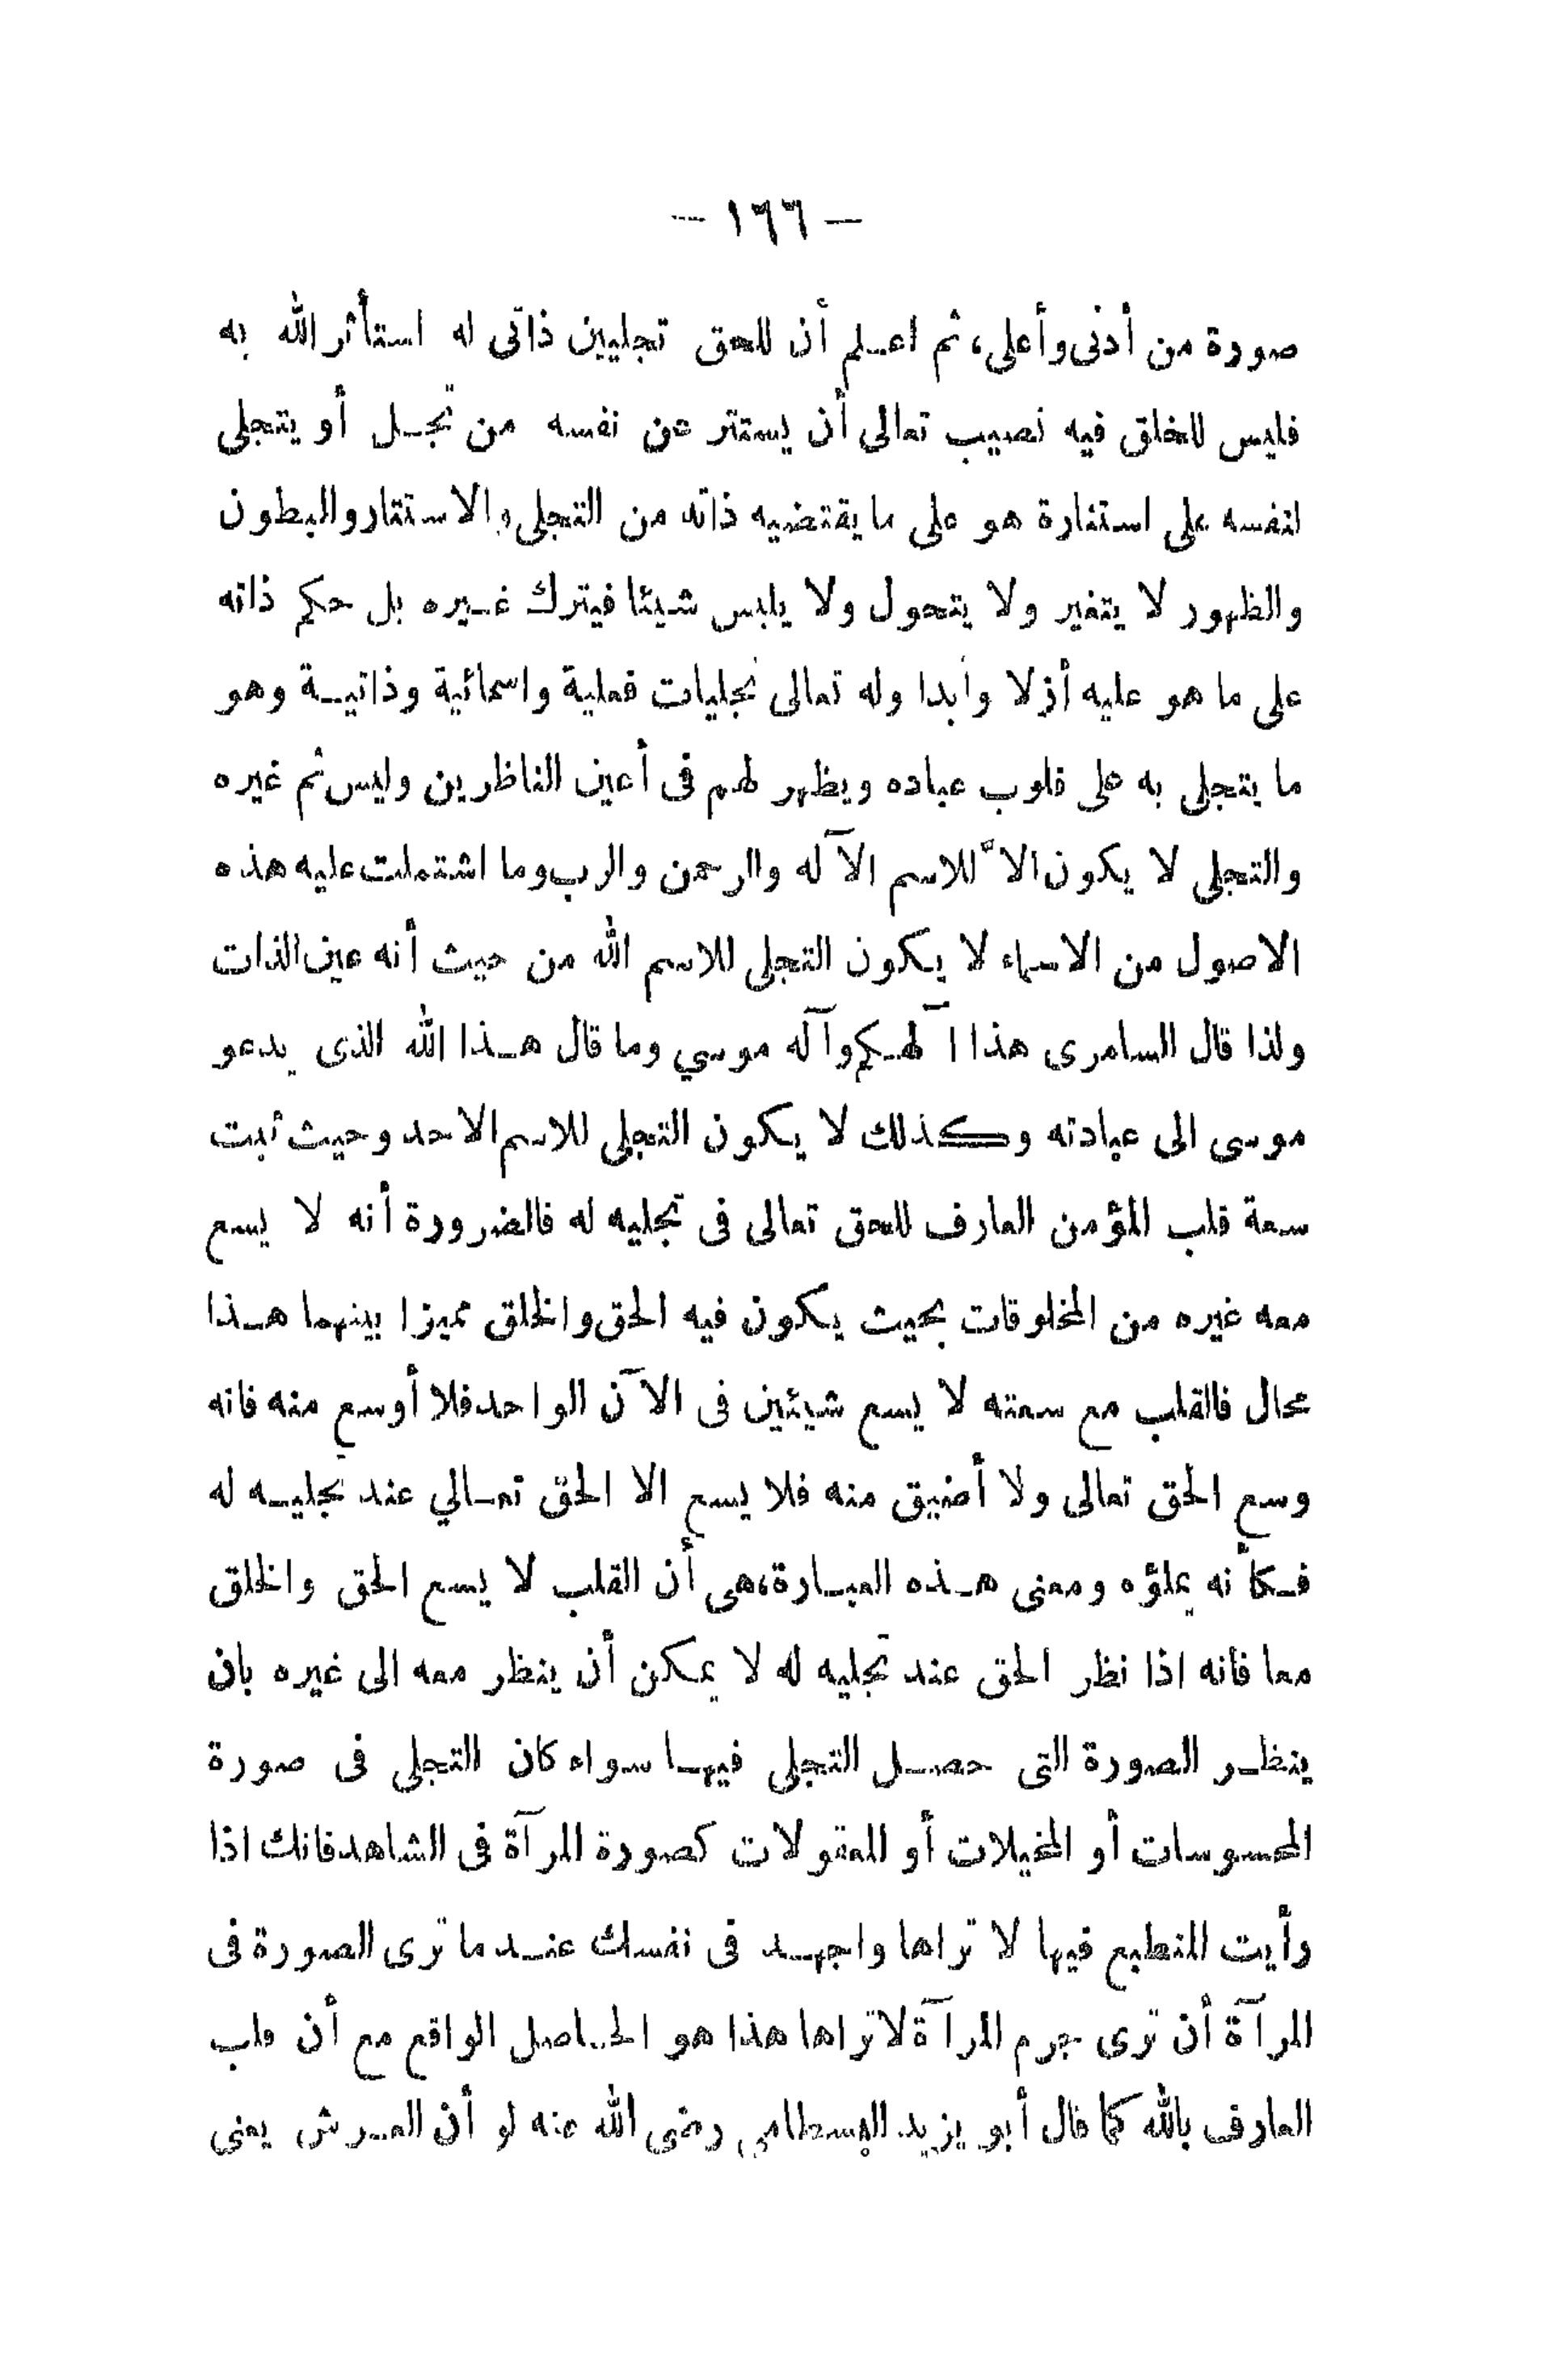 — ١٦٦ —
صورة من أدنى وأعلى، ثم اعلم أن للحق تجليين ذاتى له استأثر الله به
فليس للخلق فيه نصيب تعالى أن يستتر عن نفسه من تجل أو يتجلى
لنفسه على استنارة هو على ما يقتضيه ذاته من التجلى والاستتار والبطون
والظهور لا يتغير ولا يتحول ولا يلبس شيئا فيترك غيره بل حكم ذاته
على ما هو عليه أزلا وأبدا وله تعالى تجليات فعلية واسمائية وذاتية وهو
ما يتجلى به على قلوب عباده ويظهر لهم فى أعين الناظرين وليس ثم غيره
والتجلى لا يكون الاّ للاسم الآله والرحمن والرب وما اشتملت عليه هذه
الاصول من الاسماء لا يكون التجلى للاسم الله من حيث أنه عين الذات
ولذا قال السامرى هذا آلهكم وآله موسي وما قال هذا الله الذى يدعو
موسى الى عبادته وكذلك لا يكون التجلى للاسم الاحد وحيث ثبت
سعة قلب المؤمن العارف للحق تعالى فى تجليه له فالضرورة أنه لا يسع
معه غيره من المخلوقات بحيث يكون فيه الحق والخلق مميزا بينهما هذا
محال فالقلب مع سعته لا يسع شيئين فى الآن الواحد فلا أوسع منه فانه
وسع الحق تعالى ولا أضيق منه فلا يسع الا الحق تعالي عند تجليه له
فكأنه يملؤه ومعنى هذه العبارة، هى أن القلب لا يسع الحق والخلق
معا فانه اذا نظر الحق عند تجليه له لا يمكن أن ينظر معه الى غيره بان
ينظر الصورة التى حصل التجلى فيها سواء كان التجلى فى صورة
المحسوسات أو المخيلات أو المعقولات كصورة المرآة فى الشاهد فانك اذا
رأيت المنطبع فيها لا تراها واجهد فى نفسك عند ما ترى الصورة فى
المرآة أن ترى جرم المرآة لا تراها هذا هو الحاصل الواقع مع أن قلب
العارف بالله كما قال أبو يزيد البسطامى رضى الله عنه لو أن العرش يعنى